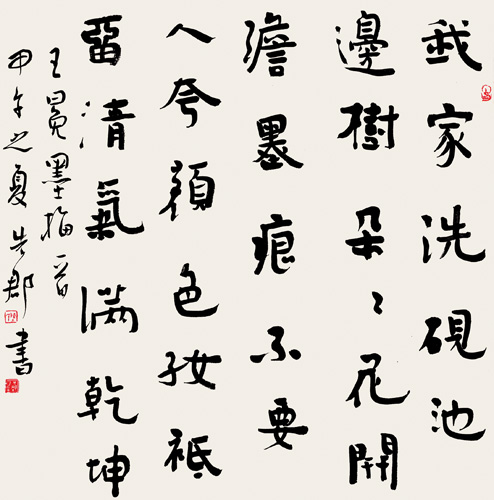 我家洗硯池
邊樹朵々花開
澹墨痕不要
人夸顏色好祗
留清氣滿乾坤
王冕墨梅一首
甲午之夏郡書